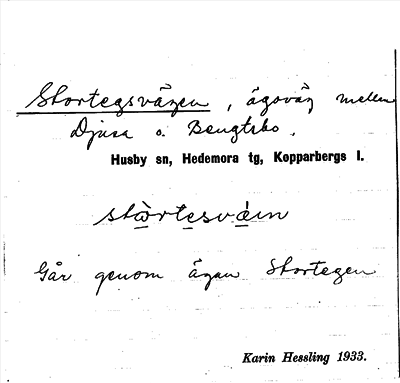 Stortegsvägen, ägoväg mellan
Djusa o. Bengtsbo.
Husby sn, Hedemora tg, Kopparbergs l.
stòrtesváin
Går genom ägan Stortegen
Karin Hessling 1933.